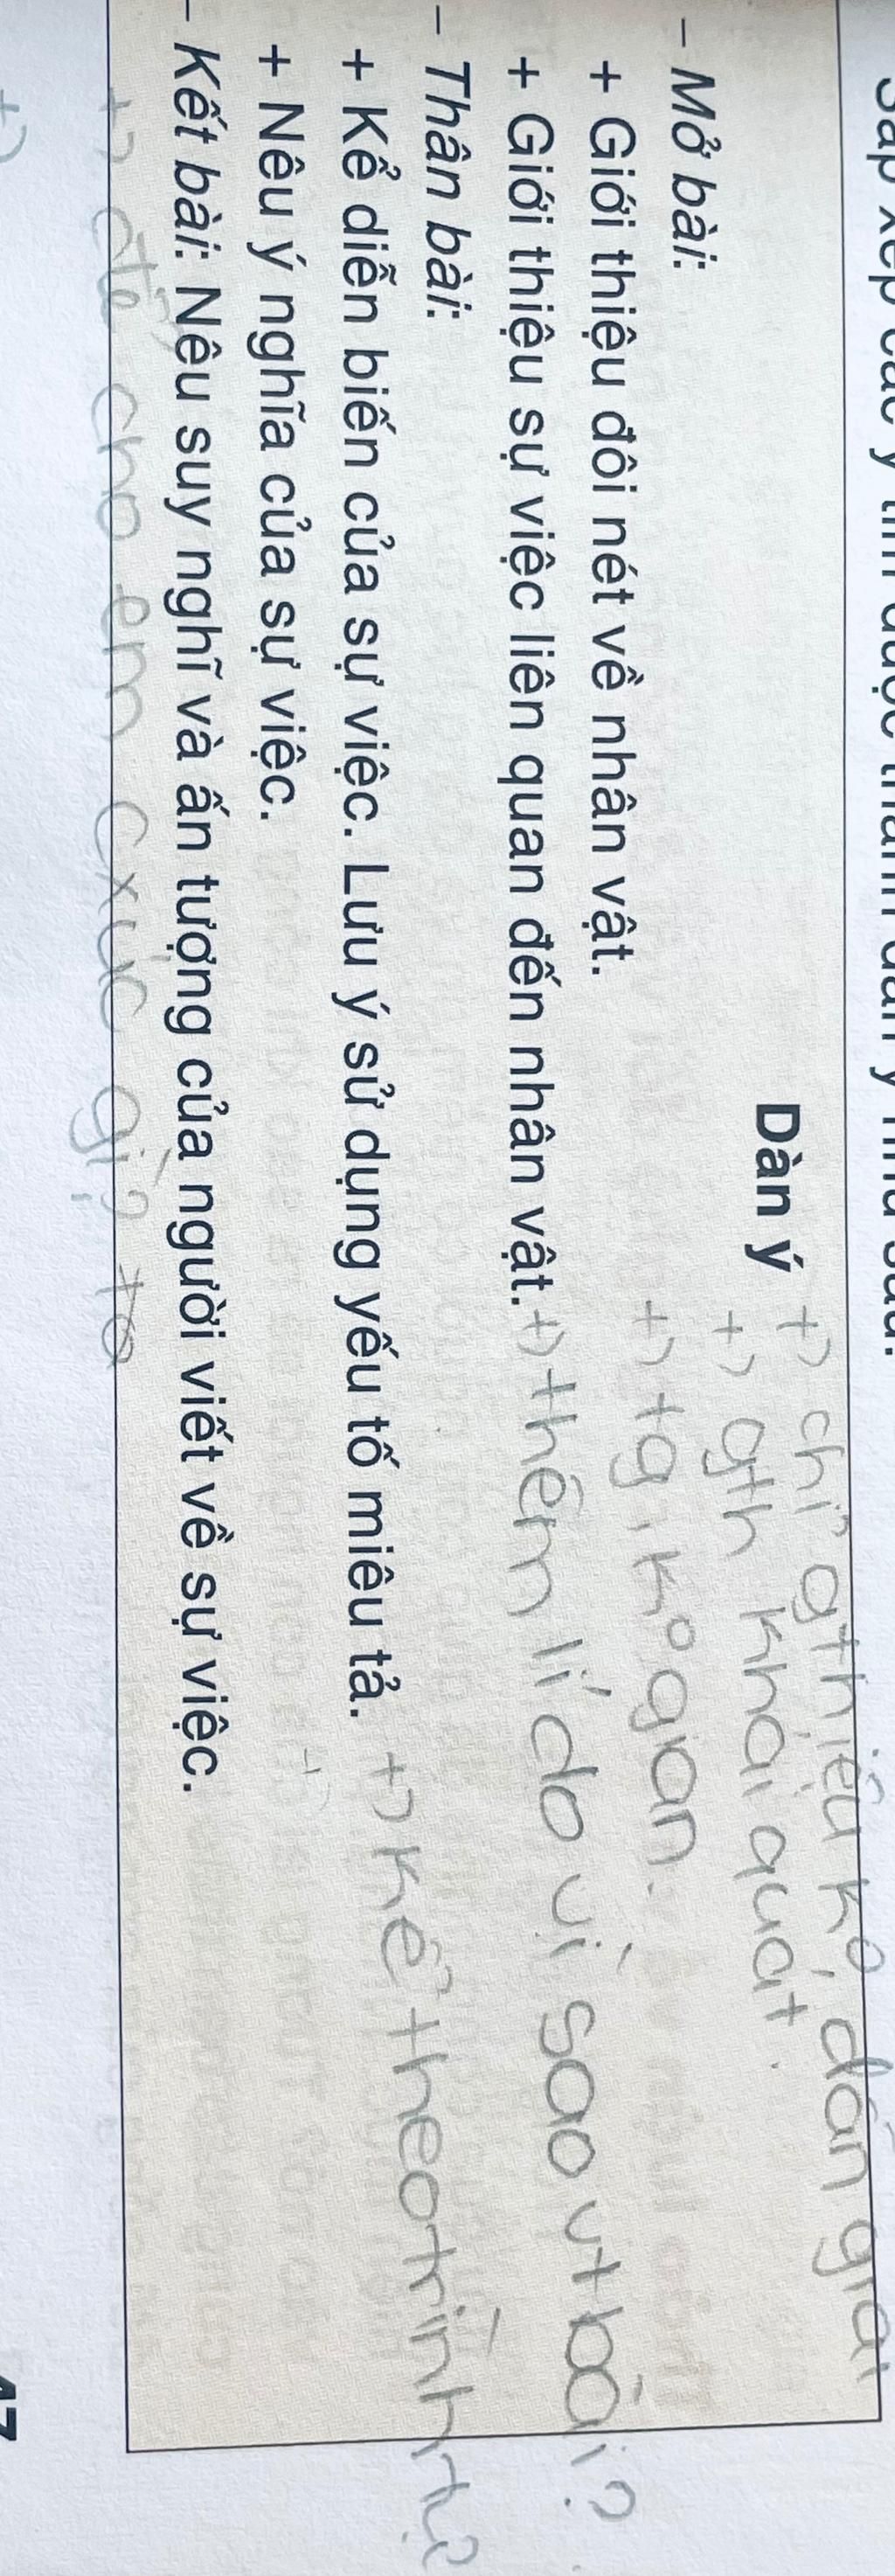 Sắp xếp các ý tìm được thành dàn ý như sau:
Dàn ý
+) chỉ gthiệu k°, dẫn giải
+) gth khái quát.
- Mở bài:
+) tg, k° gian.
+ Giới thiệu đôi nét về nhân vật.
+ Giới thiệu sự việc liên quan đến nhân vật. +) thêm lí do vì sao vt bài?
- Thân bài:
+ Kể diễn biến của sự việc. Lưu ý sử dụng yếu tố miêu tả. +) kể theo trình tự
+ Nêu ý nghĩa của sự việc.
- Kết bài: Nêu suy nghĩ và ấn tượng của người viết về sự việc.
+) để cho em cxúc gì?
47